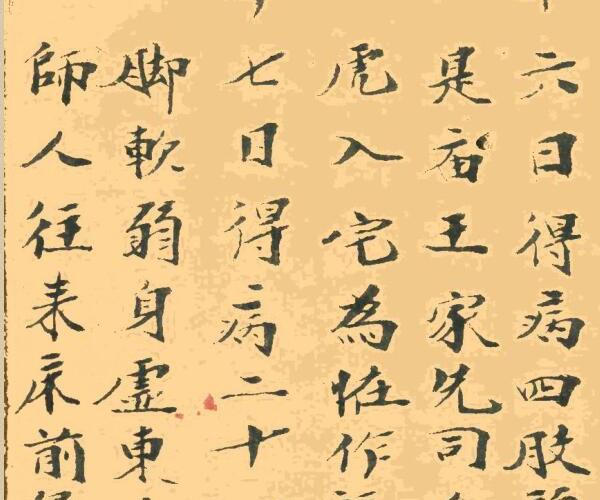 六日得病四肢
是宿王家先司
虎入宅為怪作
七日得病二十
脚軟弱身虛東
師人往来床前